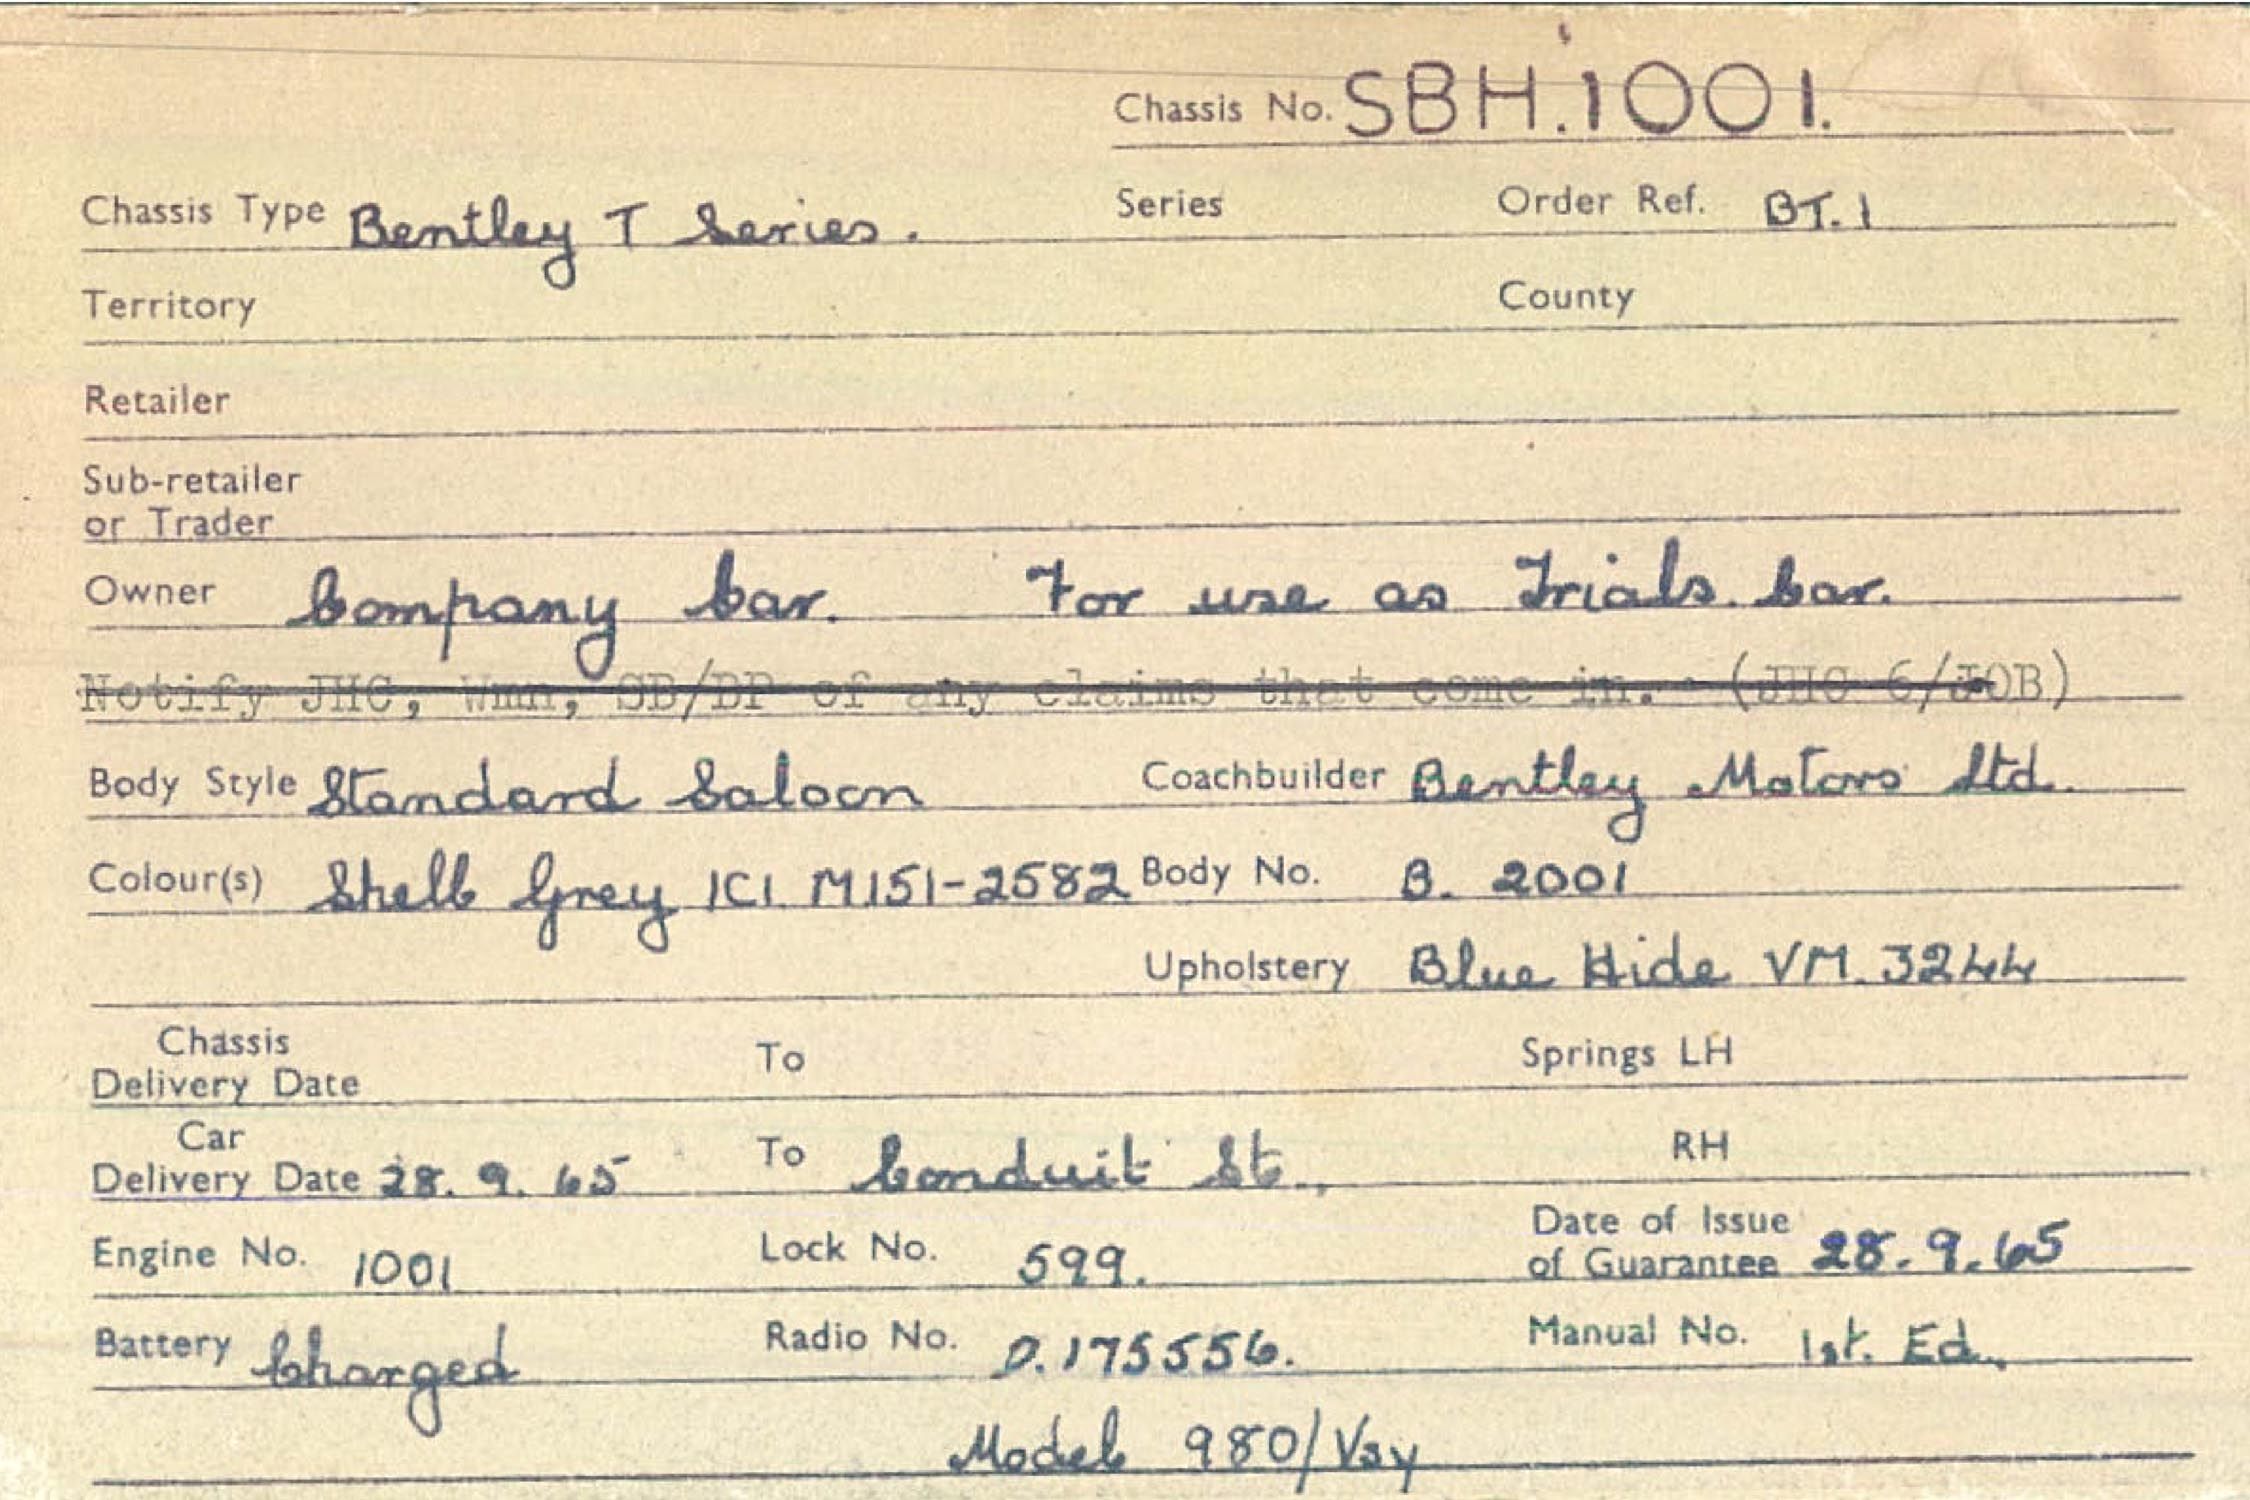 Chassis No. SBH.1001.
Chassis Type Bentley T Series. Series Order Ref. BT.1
Territory County
Retailer
Sub-retailer
or Trader
Owner Company Car. For use as Trials. Car.
Notify JHC, Wmn, SB/DP of any claims that come in. (JHC 6/JOB)
Body Style Standard Saloon Coachbuilder Bentley Motors Ltd.
Colour(s) Shell Grey ICI. M151-2582 Body No. B. 2001
Upholstery Blue Hide VM. 3244
Chassis
Delivery Date To Springs LH
Car
Delivery Date 28. 9. 65 To Conduit St., RH
Engine No. 1001 Lock No. 599. Date of Issue
of Guarantee 28. 9. 65
Battery Charged Radio No. D.175556. Manual No. 1st. Ed.
Model 980/